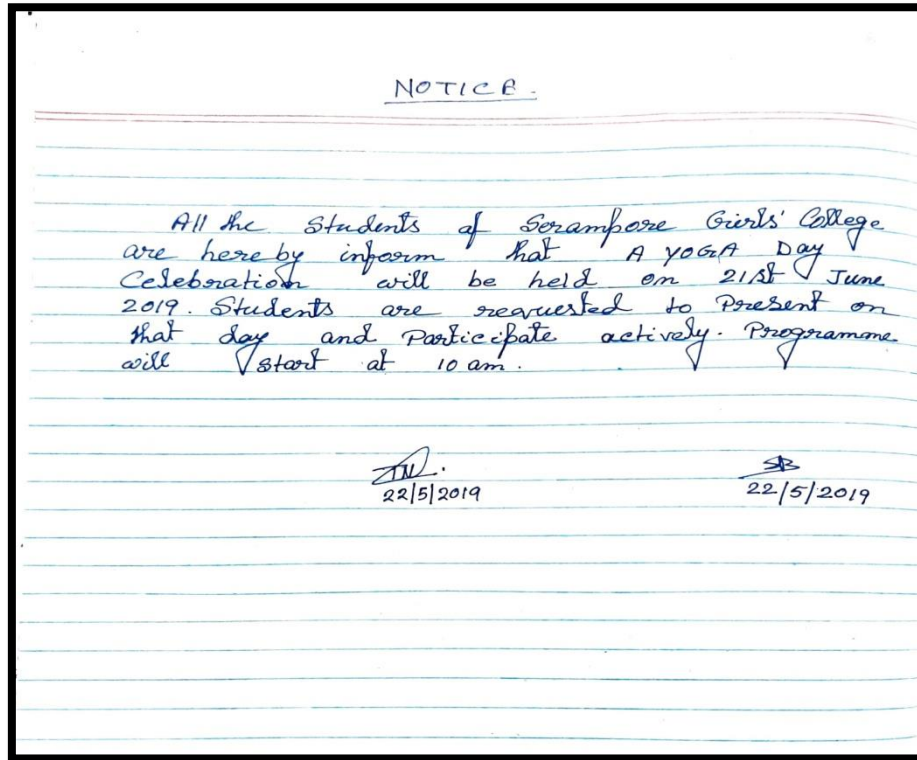 NOTICE.
All the Students of Serampore Girls' College
are here by inform that A YOGA Day
Celebration will be held on 21st June
2019. Students are requested to Present on
that day and Participate actively. Programme
will start at 10 am.
22/5/2019 SB 22/5/2019